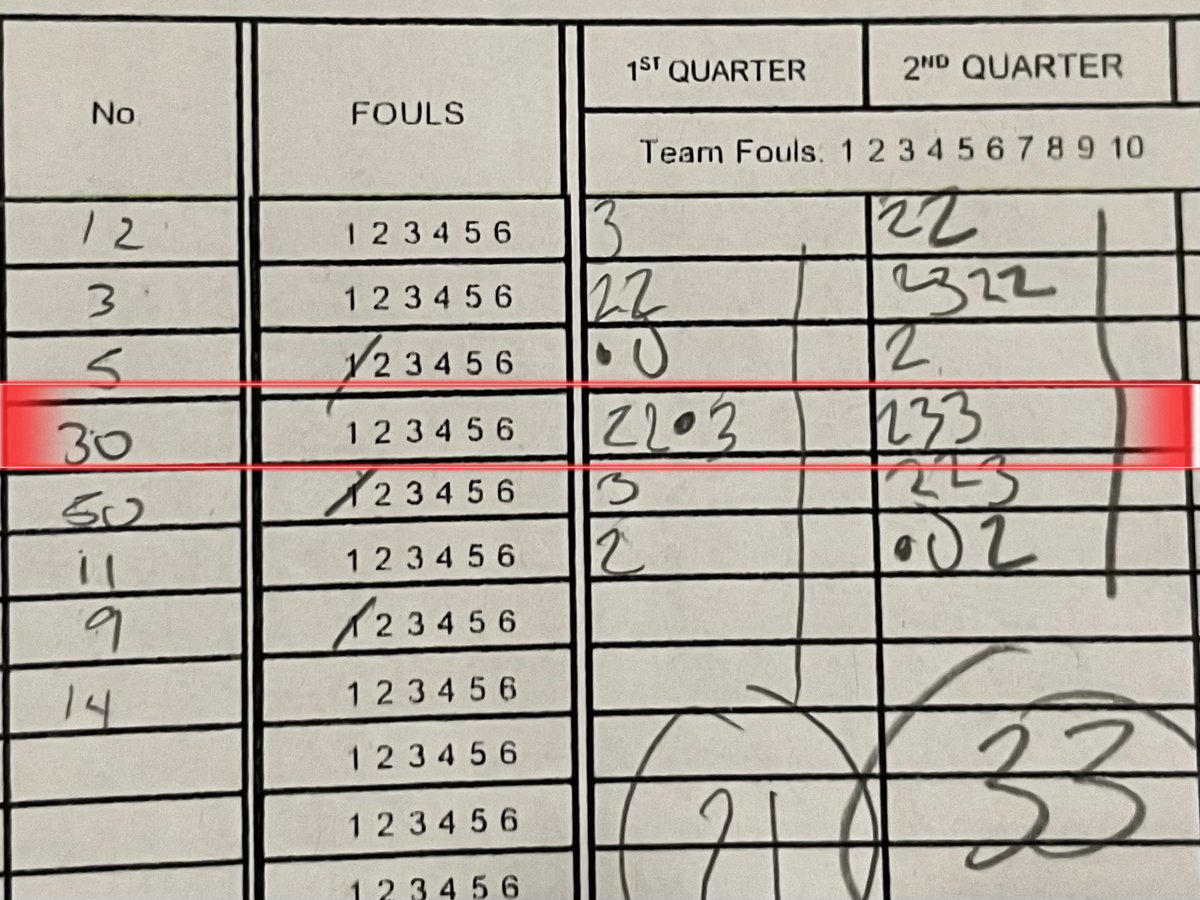 1ST QUARTER 2ND QUARTER
No FOULS
Team Fouls: 1 2 3 4 5 6 7 8 9 10
12 1 2 3 4 5 6 3 22
3 1 2 3 4 5 6 22 2322
5 1 2 3 4 5 6 •0 2
30 1 2 3 4 5 6 22•3 233
50 1 2 3 4 5 6 3 223
11 1 2 3 4 5 6 2 •02
9 1 2 3 4 5 6
14 1 2 3 4 5 6
1 2 3 4 5 6
1 2 3 4 5 6 21 33
1 2 3 4 5 6